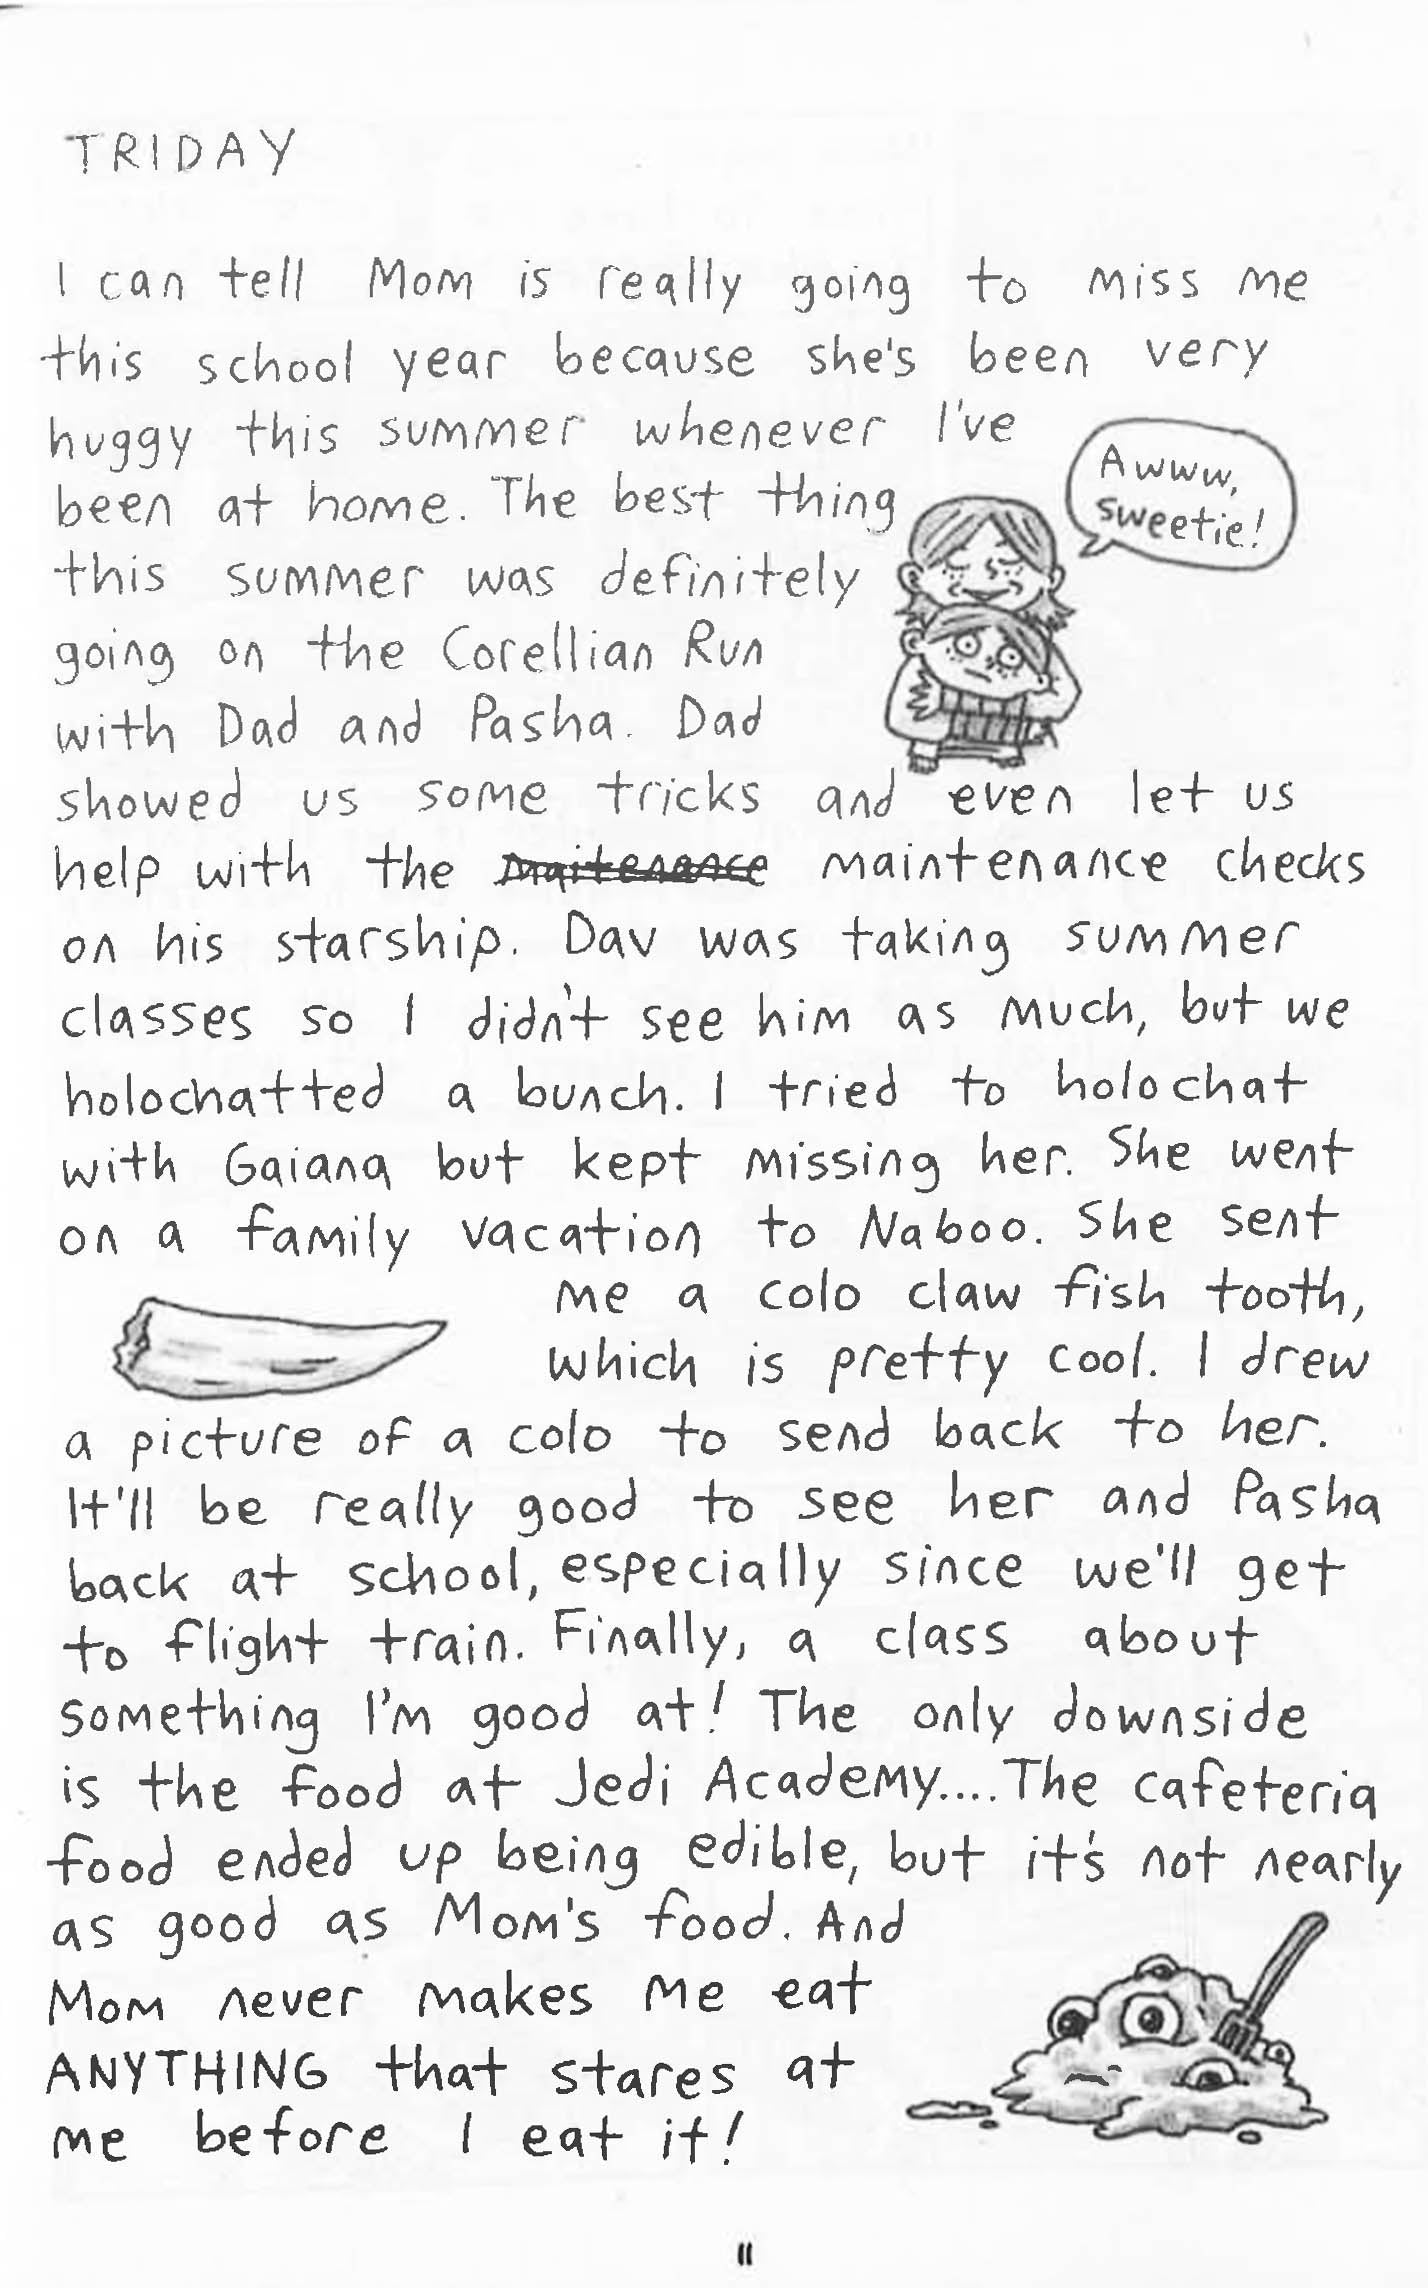 TRIDAY
I can tell Mom is really going to miss me
this school year because she's been very
huggy this summer whenever I've
been at home. The best thing
Awww,
sweetie!
this summer was definitely
going on the Corellian Run
with Dad and Pasha. Dad
showed us some tricks and even let us
help with the maitenance maintenance checks
on his starship. Dav was taking summer
classes so I didn't see him as much, but we
holochatted a bunch. I tried to holochat
with Gaiana but kept missing her. She went
on a family vacation to Naboo. She sent
me a colo claw fish tooth,
which is pretty cool. I drew
a picture of a colo to send back to her.
It'll be really good to see her and Pasha
back at school, especially since we'll get
to flight train. Finally, a class about
something I'm good at! The only downside
is the food at Jedi Academy.... The cafeteria
food ended up being edible, but it's not nearly
as good as Mom's food. And
Mom never makes me eat
ANYTHING that stares at
me before I eat it!
11